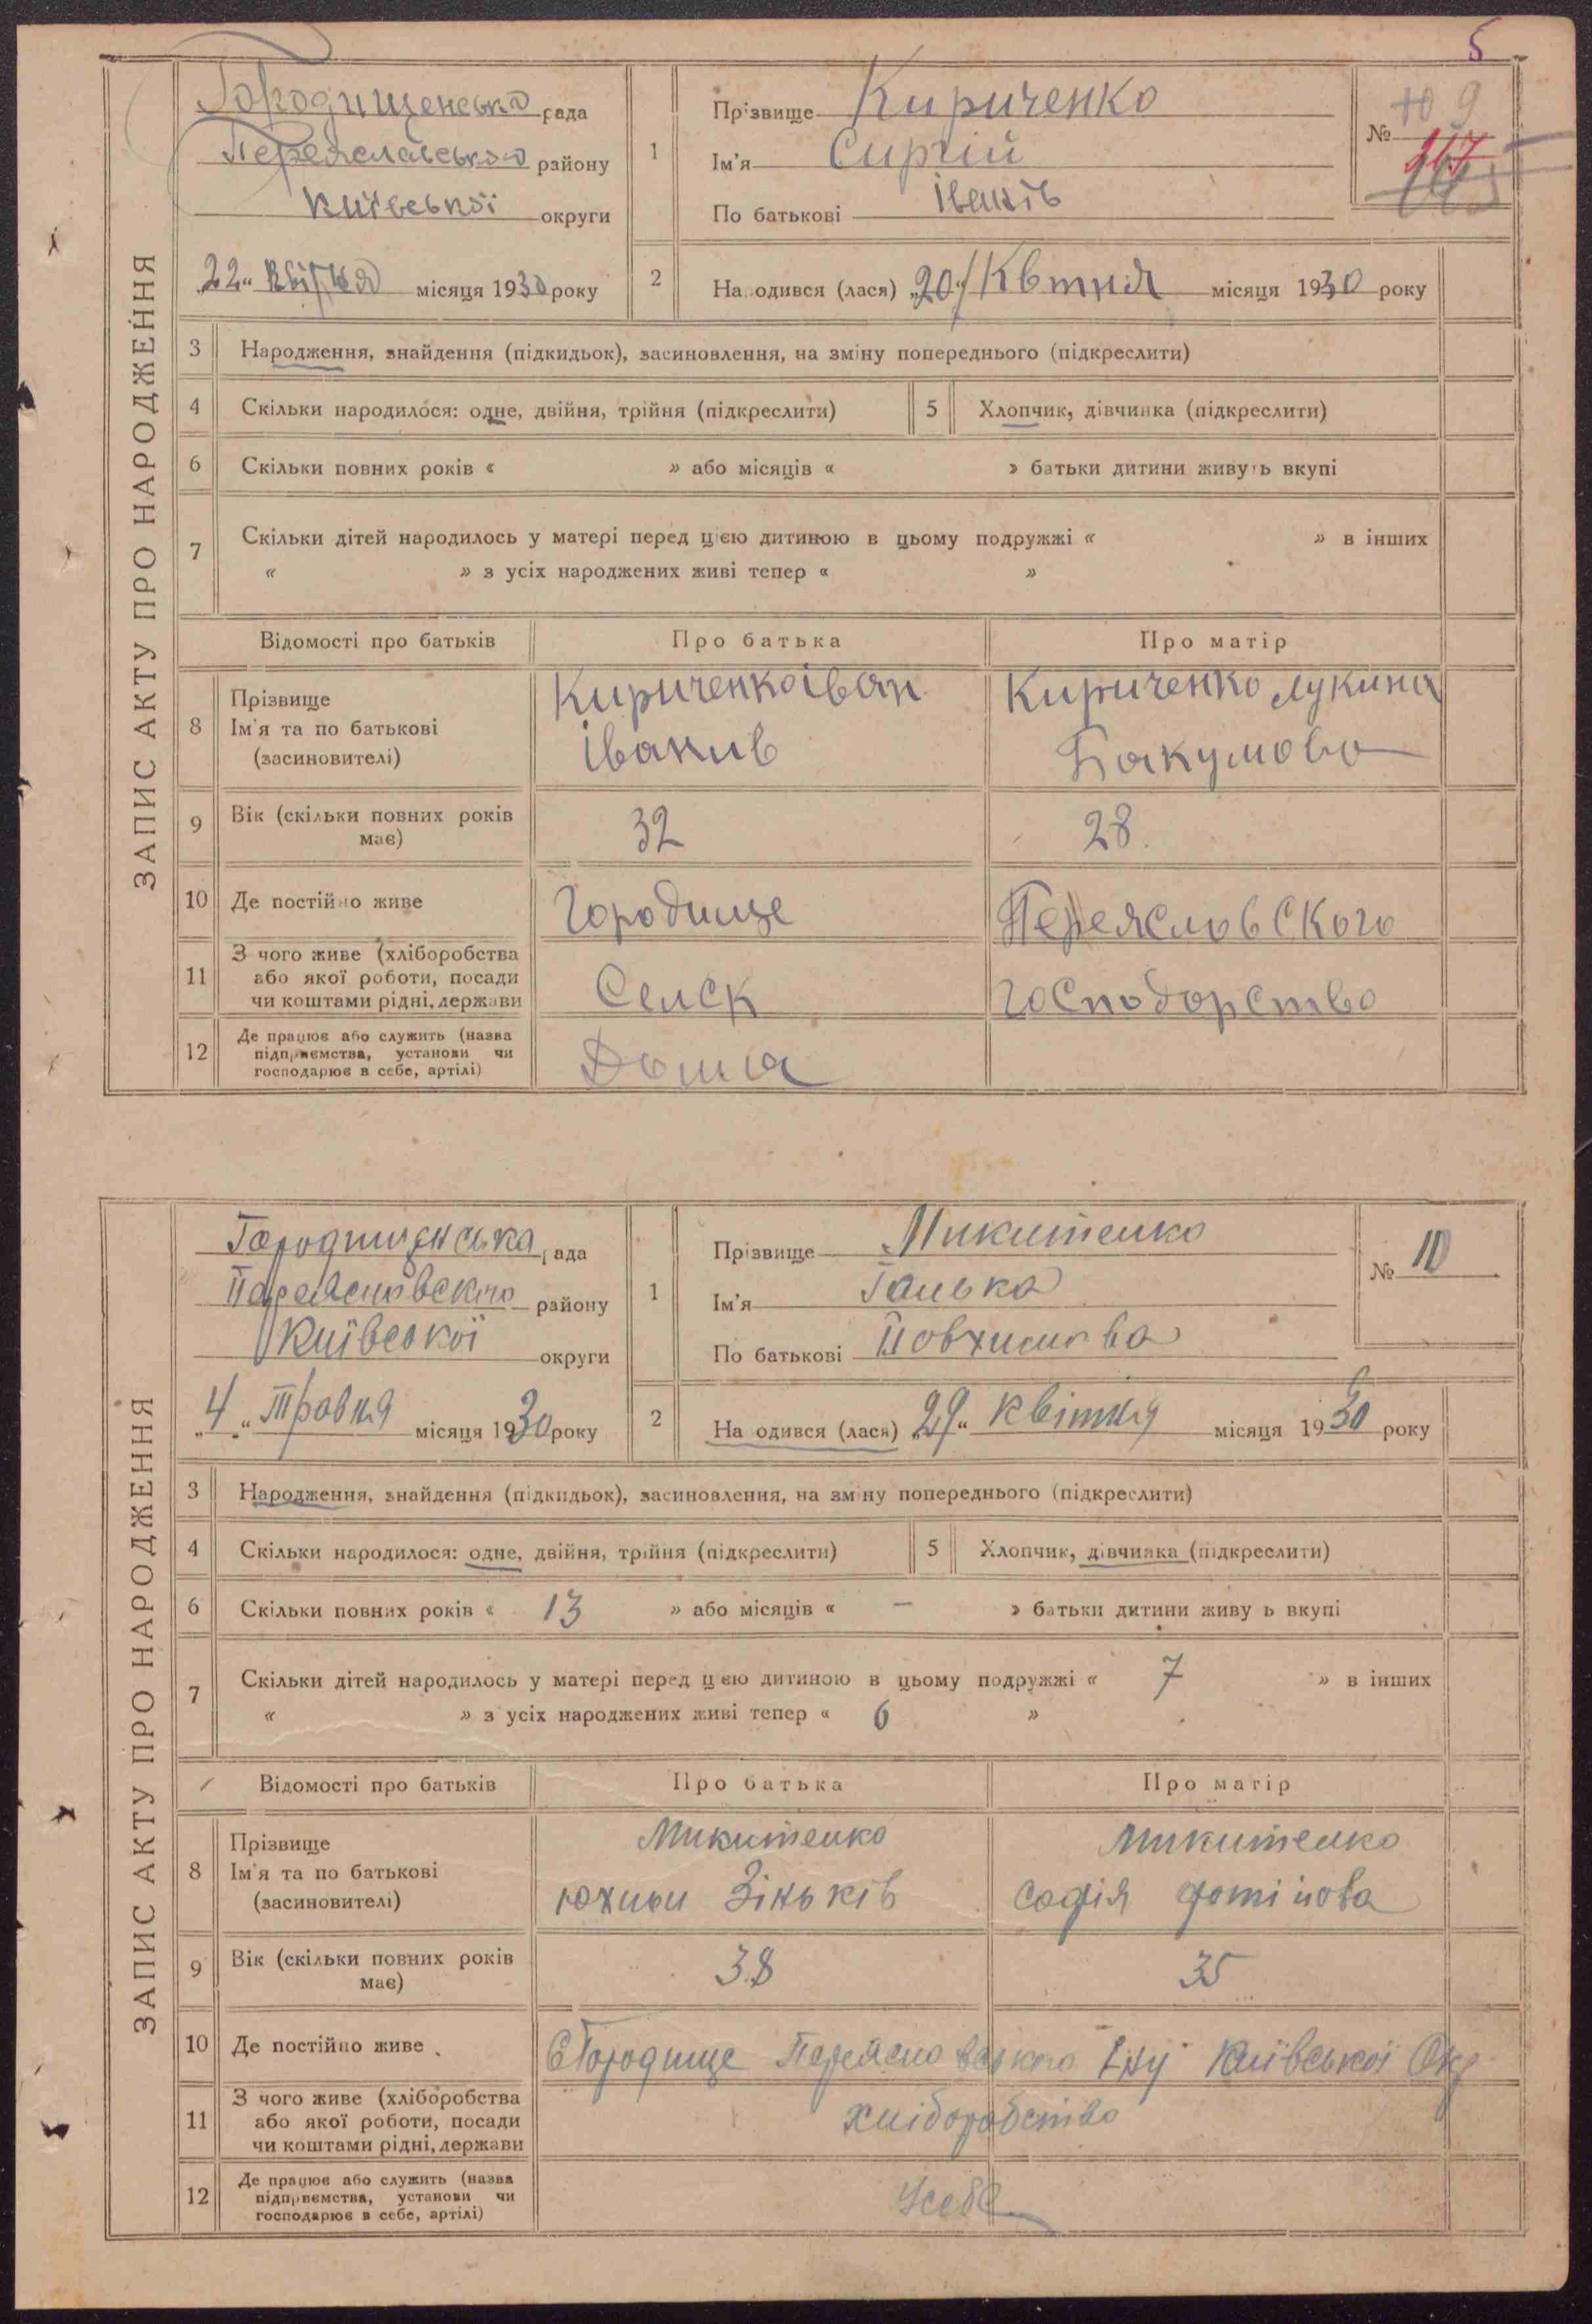 5
ЗАПИС АКТУ ПРО НАРОДЖЕННЯ
Городищенська рада
Переяславського району
Київської округи
„22“ Квітня місяця 1930 року
1
Прізвище Кириченко
Ім'я Сиргій
По батькові Іванів
№ 9
267
2
Народився (лася) „20“ Квтня місяця 1930 року
3 Народження, знайдення (підкидьок), засиновлення, на зміну попереднього (підкреслити)
4 Скільки народилося: одне, двійня, трійня (підкреслити)
5 Хлопчик, дівчинка (підкреслити)
6 Скільки повних років « » або місяців « » батьки дитини живуть вкупі
7 Скільки дітей народилось у матері перед цією дитиною в цьому подружжі « » в інших
« » з усіх народжених живі тепер « »
Відомості про батьків Про батька Про матір
8 Прізвище
Ім'я та по батькові
(засиновителі)
Кириченко Іван
Іванив
Кириченко Лукина
Бакумова
9 Вік (скільки повних років
має)
32 28
10 Де постійно живе Городище Переясловского
11 З чого живе (хліборобства
або якої роботи, посади
чи коштами рідні, держави
Селск Господорство
12 Де працює або служить (назва
підприємства, установи чи
господарює в себе, артілі)
Дома
ЗАПИС АКТУ ПРО НАРОДЖЕННЯ
Городищенська рада
Переясловского району
Київської округи
„4“ Травня місяця 1930 року
1
Прізвище Микитенко
Ім'я Ганька
По батькові Йовхимова
№ 10
2
Народився (лася) „29“ Квітня місяця 1930 року
3 Народження, знайдення (підкидьок), засиновлення, на зміну попереднього (підкреслити)
4 Скільки народилося: одне, двійня, трійня (підкреслити)
5 Хлопчик, дівчинка (підкреслити)
6 Скільки повних років « 13 » або місяців « — » батьки дитини живуть вкупі
7 Скільки дітей народилось у матері перед цією дитиною в цьому подружжі « 7 » в інших
« » з усіх народжених живі тепер « 6 »
Відомості про батьків Про батька Про матір
8 Прізвище
Ім'я та по батькові
(засиновителі)
Микитенко
Юхим Зіньків
Микитенко
Софія Фотійова
9 Вік (скільки повних років
має)
38 35
10 Де постійно живе С Городище Переясловского Київської Окр
11 З чого живе (хліборобства
або якої роботи, посади
чи коштами рідні, держави
хліборобство
12 Де працює або служить (назва
підприємства, установи чи
господарює в себе, артілі)
Усебе